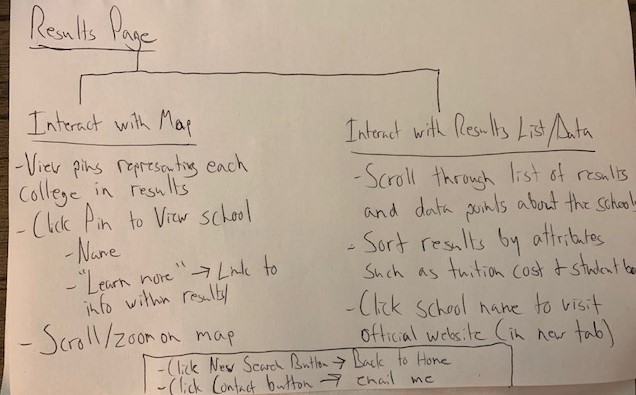 Results Page
Interact with Map
-View pins representing each
college in results
-Click Pin to View school
-Name
-"Learn more" → Link to
info within results
- Scroll/zoom on map
Interact with Results List/Data
-Scroll through list of results
and data points about the school
- Sort results by attributes
such as tuition cost & student
-Click school name to visit
official website (in new tab)
-Click New Search Button → Back to Home
-Click Contact button → email me